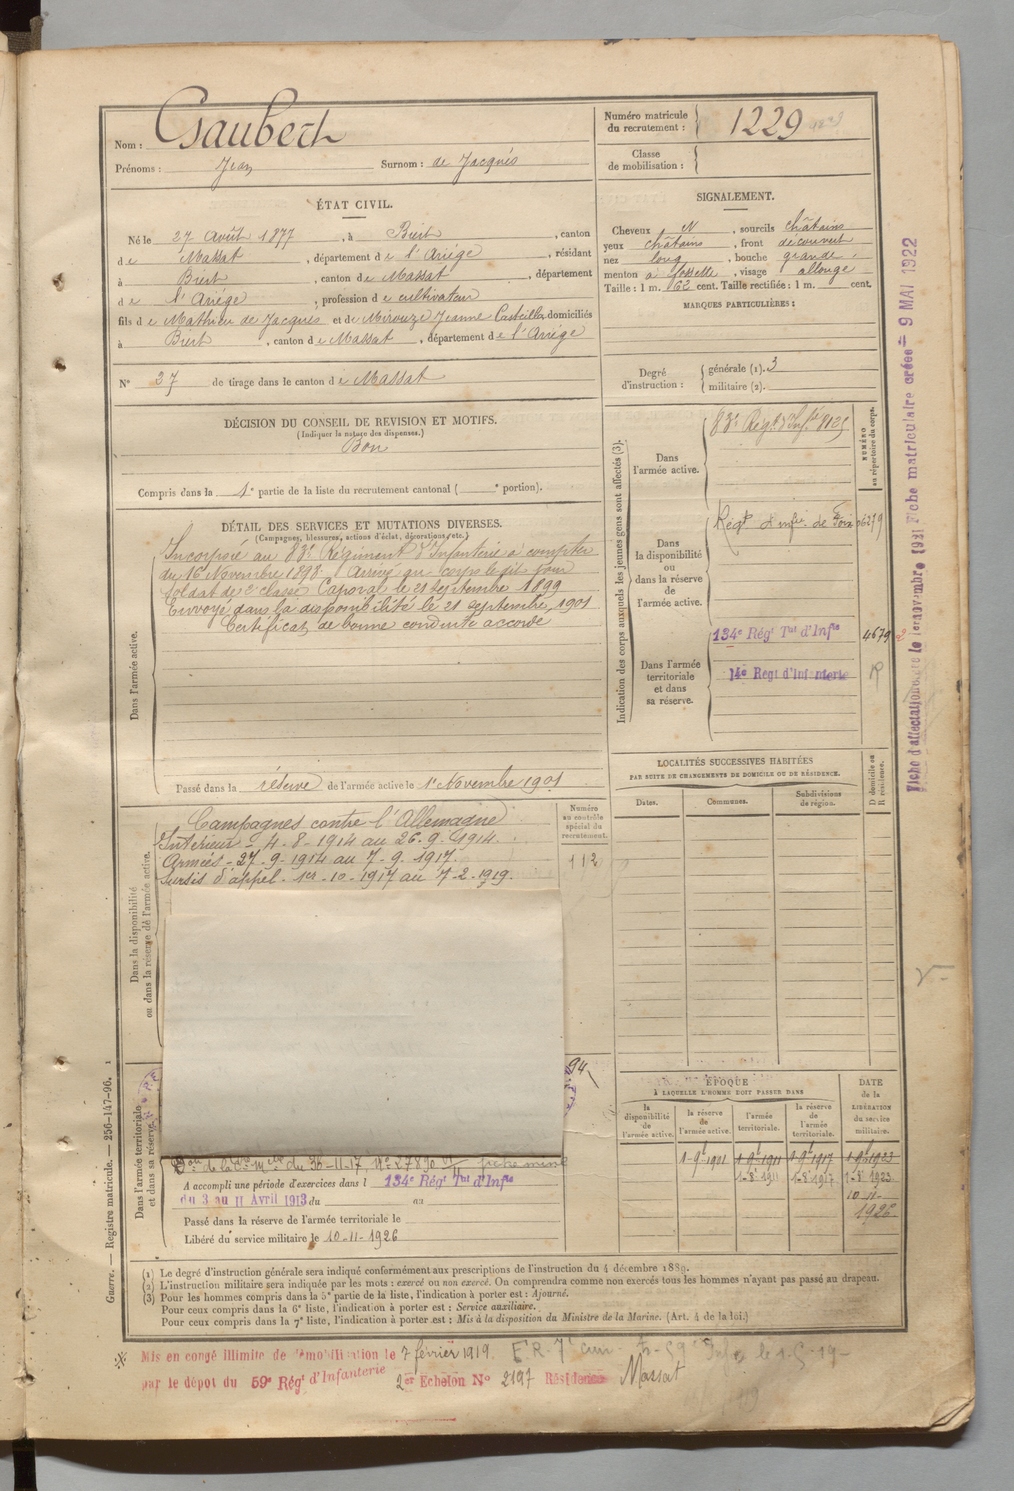 Nom : Gaubert
Prénoms : Jean Surnom : de Jacques
Numéro matricule du recrutement : 1229
Classe de mobilisation :
ÉTAT CIVIL.
Né le 27 Août 1877, à Biert, canton
de Massat, département de l'Ariège, résidant
à Biert, canton de Massat, département
de l'Ariège, profession de cultivateur
fils de Mathieu de Jacques et de Mirouze Jeanne Casteilla domiciliés
à Biert, canton de Massat, département de l'Ariège
N° 27 de tirage dans le canton de Massat
SIGNALEMENT.
Cheveux N, sourcils châtains
yeux châtains, front découvert
nez long, bouche grande
menton à fossette, visage allongé
Taille : 1 m. 62 cent. Taille rectifiée : 1 m. cent.
MARQUES PARTICULIÈRES :
Degré d'instruction : générale (1). 3
militaire (2).
DÉCISION DU CONSEIL DE REVISION ET MOTIFS.
(Indiquer la nature des dispenses.)
Bon
Compris dans la 1e partie de la liste du recrutement cantonal ( e portion).
DÉTAIL DES SERVICES ET MUTATIONS DIVERSES.
(Campagnes, blessures, actions d'éclat, décorations, etc.)
Dans l'armée active.
Incorporé au 83e Régiment d'Infanterie à compter
du 16 Novembre 1898. Arrivé au corps le dit jour
soldat de 2e classe Caporal le 21 septembre 1899
Envoyé dans la disponibilité le 21 septembre 1901
Certificat de bonne conduite accordé
Passé dans la réserve de l'armée active le 1er Novembre 1901
Indication des corps auxquels les jeunes gens sont affectés (3).
NUMÉRO au répertoire du corps.
Dans l'armée active.
83e Régt d'Infie 8125
Dans la disponibilité ou dans la réserve de l'armée active.
Régt d'infie de Foix 06279
Dans l'armée territoriale et dans sa réserve.
134e Régt Tal d'Infie 4679
14e Régt d'Infanterie
LOCALITÉS SUCCESSIVES HABITÉES
PAR SUITE DE CHANGEMENTS DE DOMICILE OU DE RÉSIDENCE.
Dates. Communes. Subdivisions de région. D domicile ou R résidence.
Dans la disponibilité ou dans la réserve de l'armée active.
Numéro au contrôle spécial du recrutement.
112
Campagnes contre l'Allemagne
Intérieur - 4-8-1914 au 26-9-1914.
Armées - 27-9-1914 au 7-9-1917.
Sursis d'appel - 1er-10-1917 au 7-2-1919.
94
Dans l'armée territoriale et dans sa réserve.
du 30-11-17, N° 27890
A accompli une période d'exercices dans l 134e Régt Tal d'Infie
du 3 au 11 Avril 1913 du au
Passé dans la réserve de l'armée territoriale le
Libéré du service militaire le 10-11-1926
ÉPOQUE
À LAQUELLE L'HOMME DOIT PASSER DANS
la disponibilité de l'armée active. la réserve de l'armée active. l'armée territoriale. la réserve de l'armée territoriale. DATE de la LIBÉRATION du service militaire.
1-9e 1901 1-9e 1911 1-9e 1917 1-9e 1923
1-8e 1911 1-8e 1917 1-8e 1923
10-11-
1926
(1) Le degré d'instruction générale sera indiqué conformément aux prescriptions de l'instruction du 4 décembre 1889.
(2) L'instruction militaire sera indiquée par les mots : exercé ou non exercé. On comprendra comme non exercés tous les hommes n'ayant pas passé au drapeau.
(3) Pour les hommes compris dans la 5e partie de la liste, l'indication à porter est : Ajourné.
Pour ceux compris dans la 6e liste, l'indication à porter est : Service auxiliaire.
Pour ceux compris dans la 7e liste, l'indication à porter est : Mis à la disposition du Ministre de la Marine. (Art. 4 de la loi.)
Mis en congé illimité de démobilisation le 7 février 1919.
par le dépot du 59e Régt d'Infanterie 2er Echelon N° 2197 Résidence Massat
Guerre. — Registre matricule. — 256-147-96.
Fiche matriculaire créée 9 MAI 1922